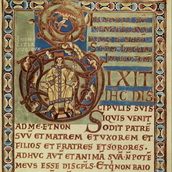 DIXIT
IHC DIS
CIPULIS SUIS
SIQUIS VENIT
AD ME ET NON
ODIT PATRE
SUU ET MATREM ET UXOREM ET
FILIOS ET FRATRES ET SORORES
ADHUC AUT ET ANIMA SUA N POTE
MEUS ESSE DISCPLS ET NON BAIO